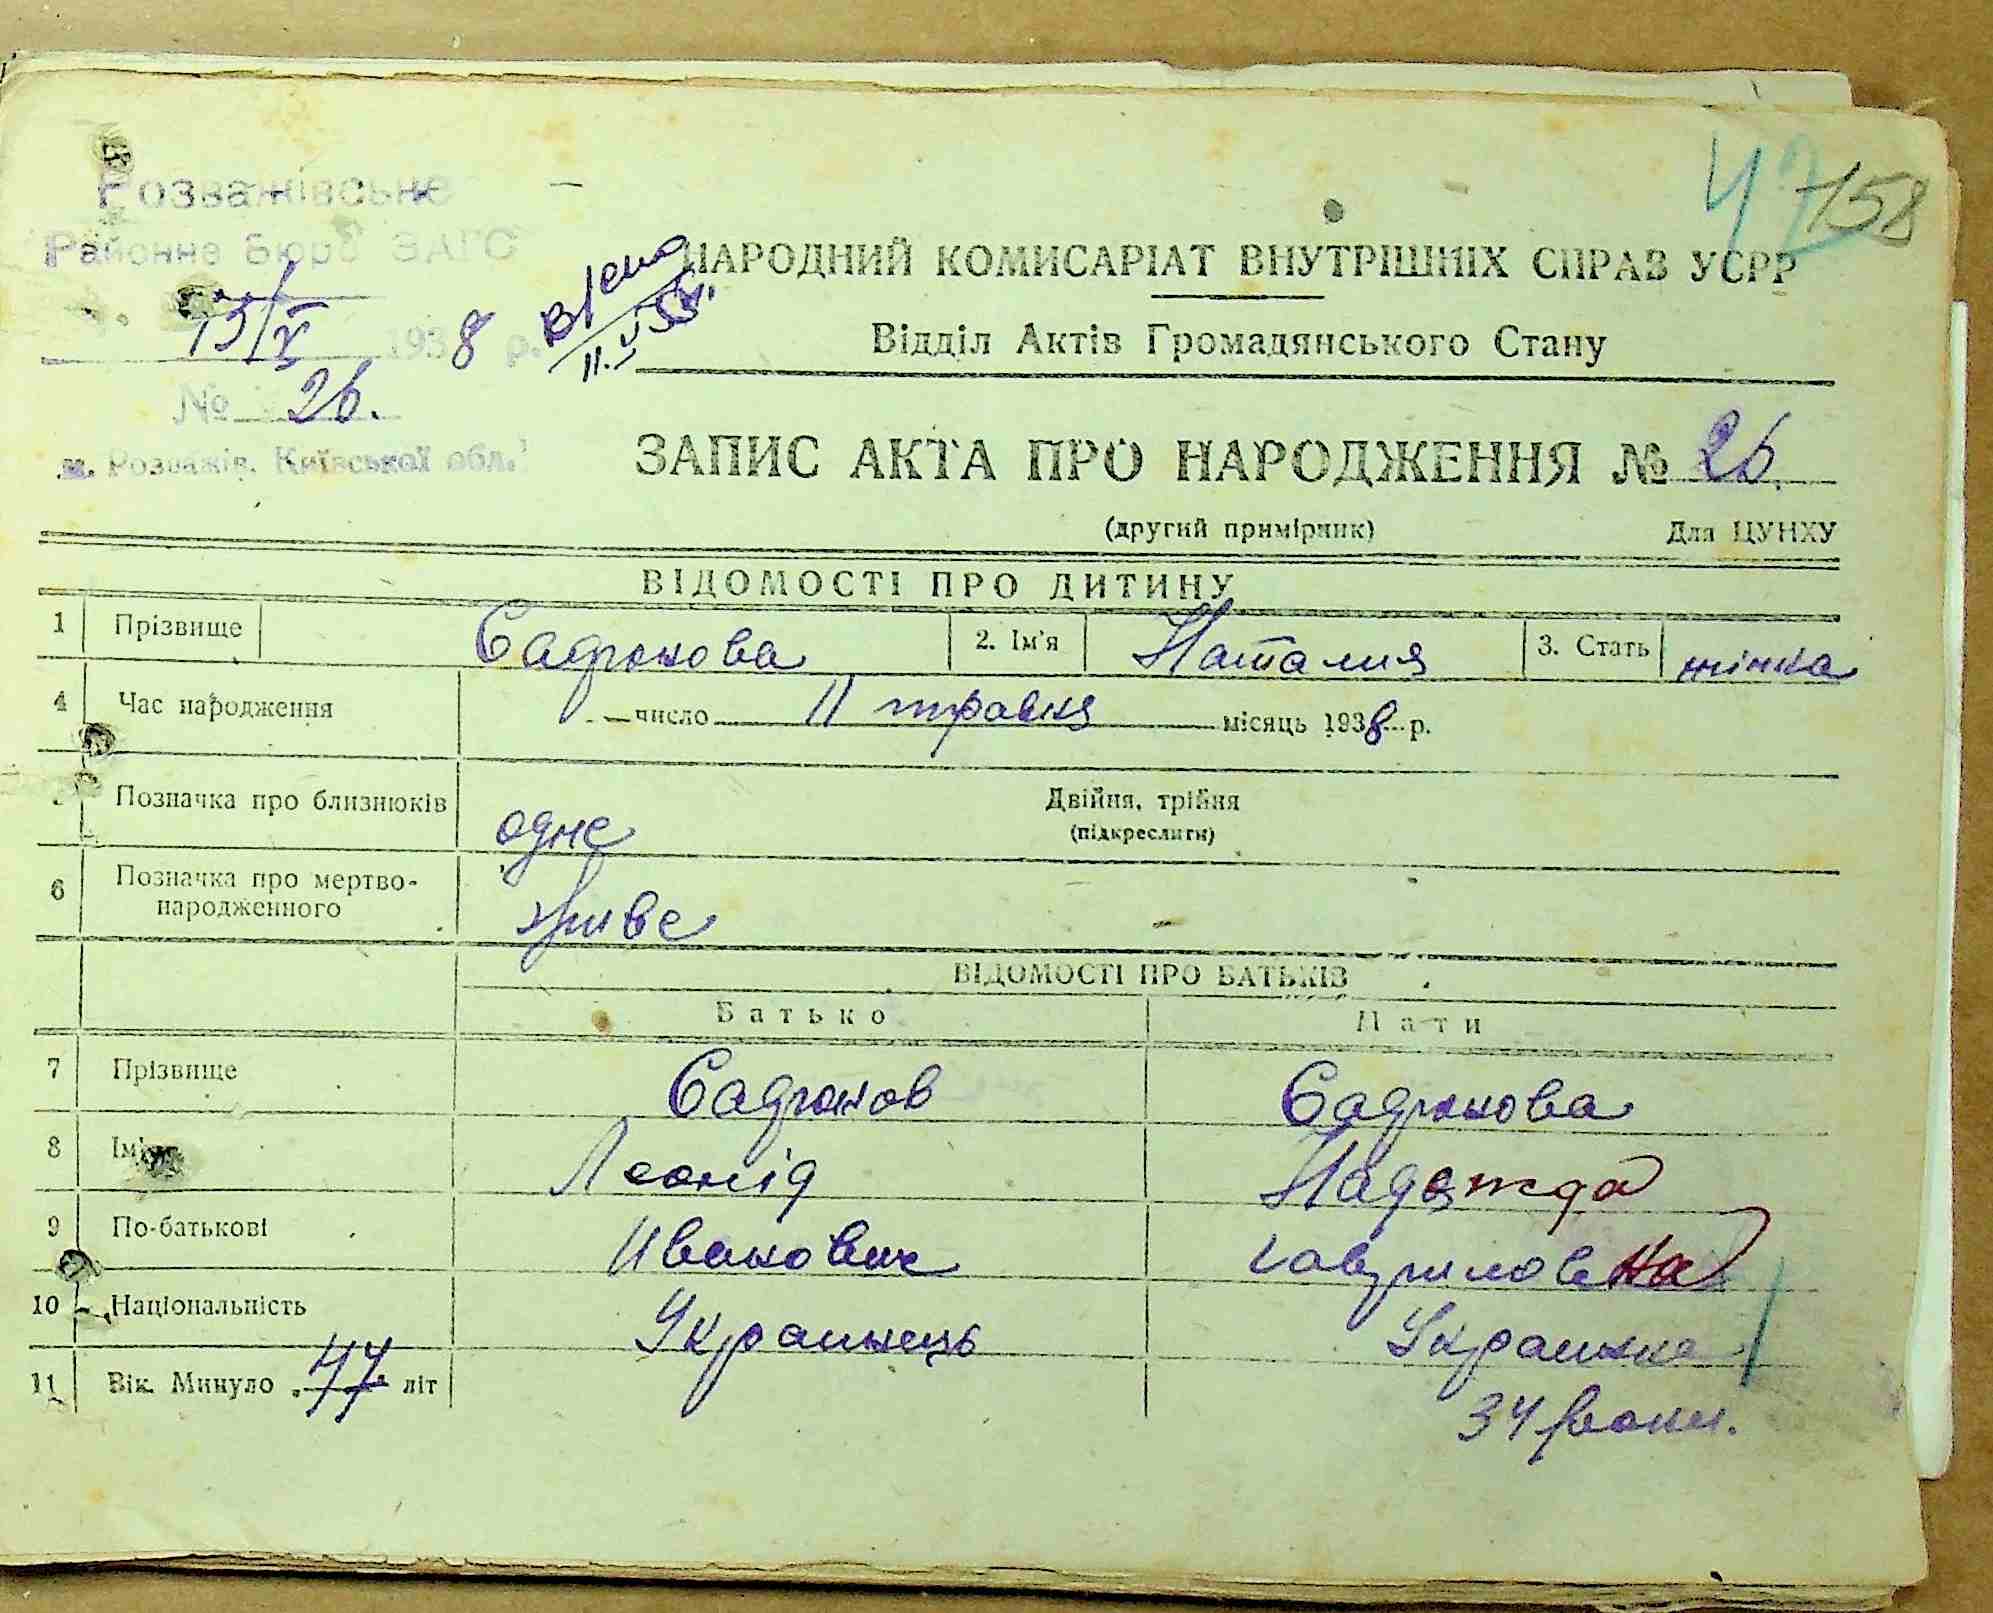 42 158
Розважівське
Районне Бюро ЗАГС
13/V 1938 р.
№ 26.
м. Розважів, Київської обл.
НАРОДНИЙ КОМИСАРІАТ ВНУТРІШНІХ СПРАВ УСРР
Відділ Актів Громадянського Стану
ЗАПИС АКТА ПРО НАРОДЖЕННЯ № 26.
(другий примірник) Для ЦУНХУ
ВІДОМОСТІ ПРО ДИТИНУ
1 Прізвище Садронова 2. Ім'я Наталия 3. Стать жінка
4 Час народження число 11 травня місяць 1938 р.
Позначка про близнюків одне Двійня, трійня
(підкреслити)
6 Позначка про мертво-
народженного живе
ВІДОМОСТІ ПРО БАТЬКІВ
Батько Мати
7 Прізвище Садронов Садронова
8 Ім'я Леонід Надежда
9 По-батькові Иванович Гавриловна
10 Національність Украинець Украинка
11 Вік. Минуло 44 літ 34 роки.